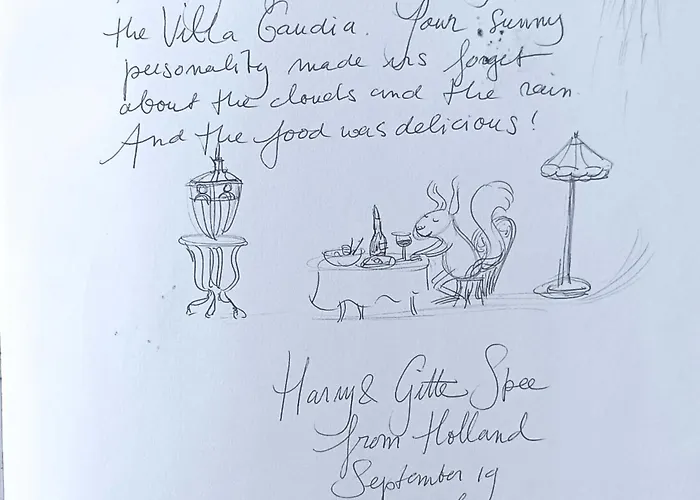 the Villa Gaudia. Your sunny
personality made us forget
about the clouds and the rain.
And the food was delicious!
Harry & Gitte Spee
from Holland
September 19